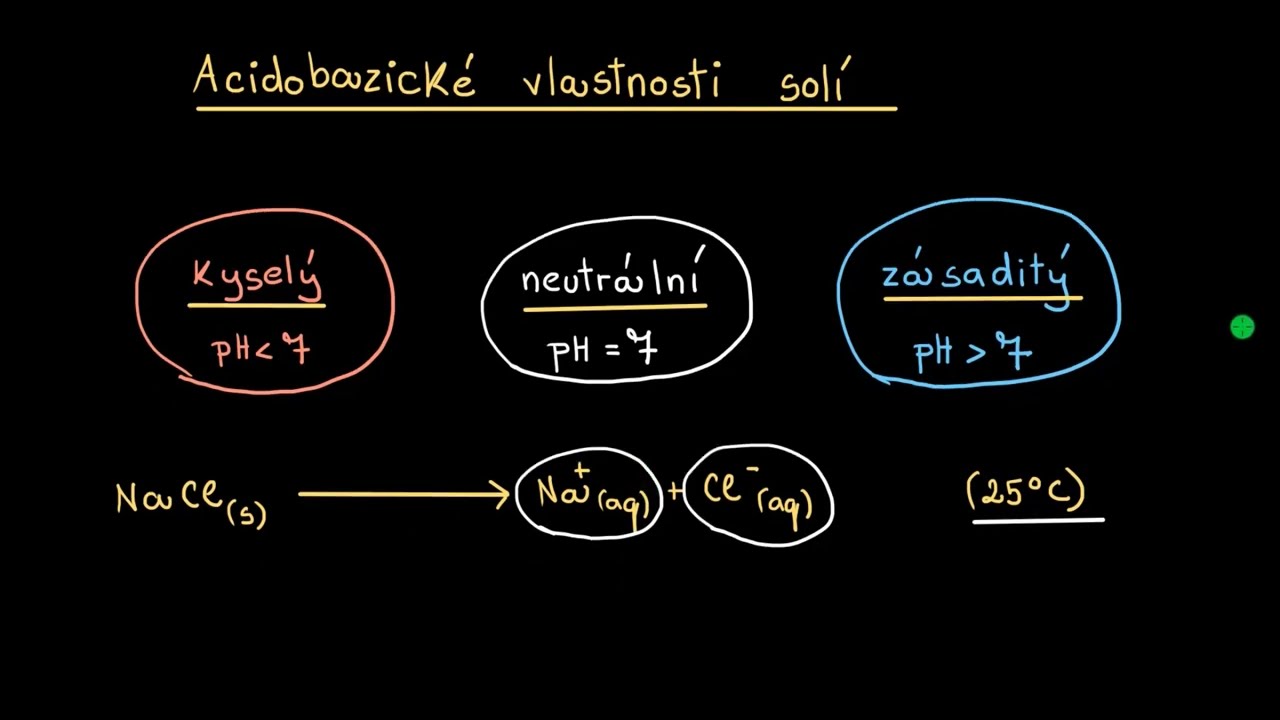 Acidobazické vlastnosti solí
kyselý neutrální zásaditý
pH < 7 pH = 7 pH > 7
NaCl(s) → Na⁺(aq) + Cl⁻(aq) (25°C)